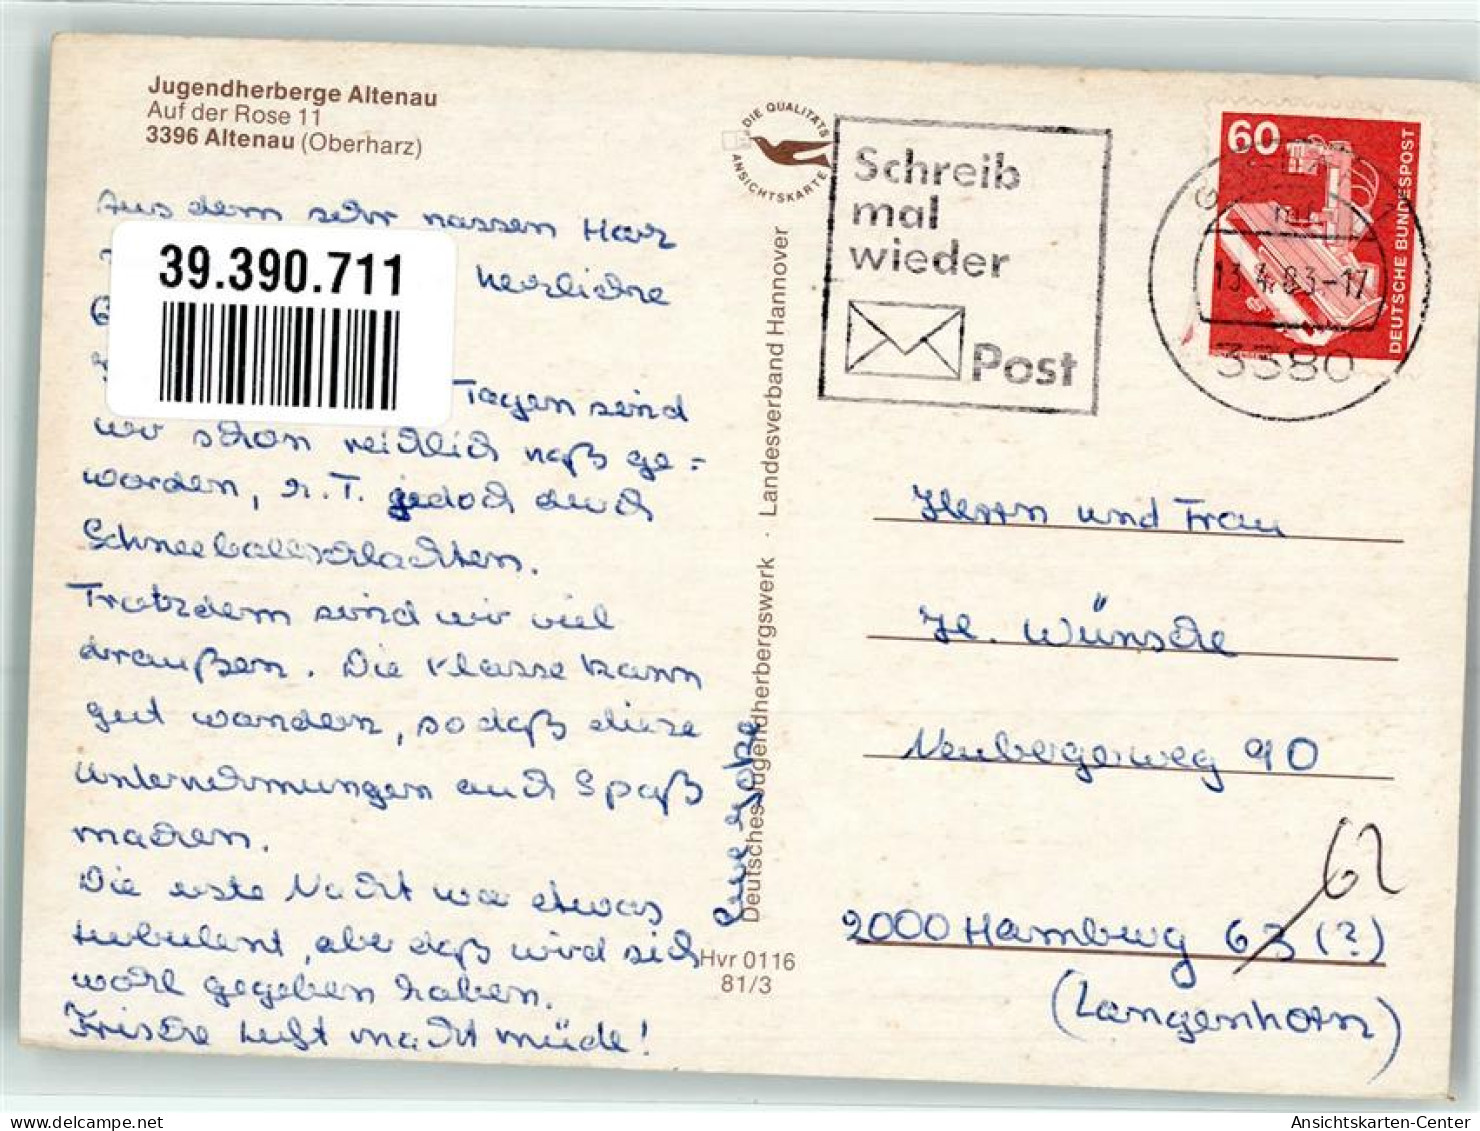 Jugendherberge Altenau
Auf der Rose 11
3396 Altenau (Oberharz)
Aus dem sehr nassen Harz
herzliche
39.390.711
Tagen sind
wir schon reichlich naß ge=
worden, z.T. jedoch durch
Schneeballschlachten.
Trotzdem sind wir viel
draußen. Die Klasse kann
gut wandern, so daß diese
Unternehmungen auch Spaß
machen.
Die erste Nacht war etwas
turbulent, aber daß wird sich
wohl gegeben haben.
Frische Luft macht müde!
DIE QUALITÄTS
ANSICHTSKARTE
Deutsches Jugendherbergswerk · Landesverband Hannover
Hvr 0116
81/3
Schreib
mal
wieder
Post
60
DEUTSCHE BUNDESPOST
83-17
3380
Herrn und Frau
H. Wünsche
Neubergerweg 90
2000 Hamburg 63 (?)
62
(Langenhorn)
Ansichtskarten-Center